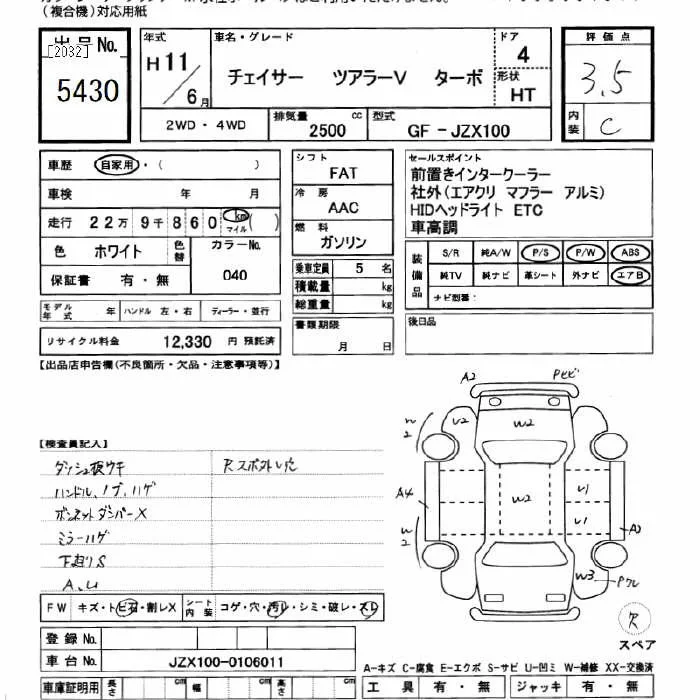 (複合機)対応用紙
出品No.
[2032]
5430
年式
H11/6月
車名・グレード
チェイサー ツアラーV ターボ
ドア
4
形状
HT
評価点
3.5
内装
C
2WD・4WD
排気量
2500 cc
型式
GF-JZX100
車歴 自家用・( )
車検 年 月
走行 22万9千860 km マイル ( )
色 ホワイト 色替 カラーNo. 040
保証書 有・無
モデル年式 年 ハンドル 左・右 ディーラー・並行
リサイクル料金 12,330 円 預託済
シフト
FAT
冷房
AAC
燃料
ガソリン
乗車定員 5 名
積載量 kg
総重量 kg
書類期限
月 日
セールスポイント
前置きインタークーラー
社外(エアクリ マフラー アルミ)
HIDヘッドライト ETC
車高調
装備品
S/R 純A/W P/S P/W ABS
純TV 純ナビ 革シート 外ナビ エアB
ナビ型番:
後日品
【出品店申告欄(不良箇所・欠品・注意事項等)】
【検査員記入】
ダッシュ板ウキ
Rスポ外し穴
ハンドル、ノブ、ハゲ
ボンネットダンパーX
ミラーハゲ
下廻りS
A、U
FW キズ・トビ石・割レX シート内装 コゲ・穴・汚レ・シミ・破レ・スレ
登録No.
車台No. JZX100-0106011
車庫証明用 長さ cm 幅 cm 高さ cm
A2
Pセビ
W2
U2
W2
A4
W2
U1
U1
W2
A2
W3
Pワレ
R
スペア
A-キズ C-腐食 E-エクボ S-サビ U-凹ミ W-補修 XX-交換済
工具 有・無 ジャッキ 有・無